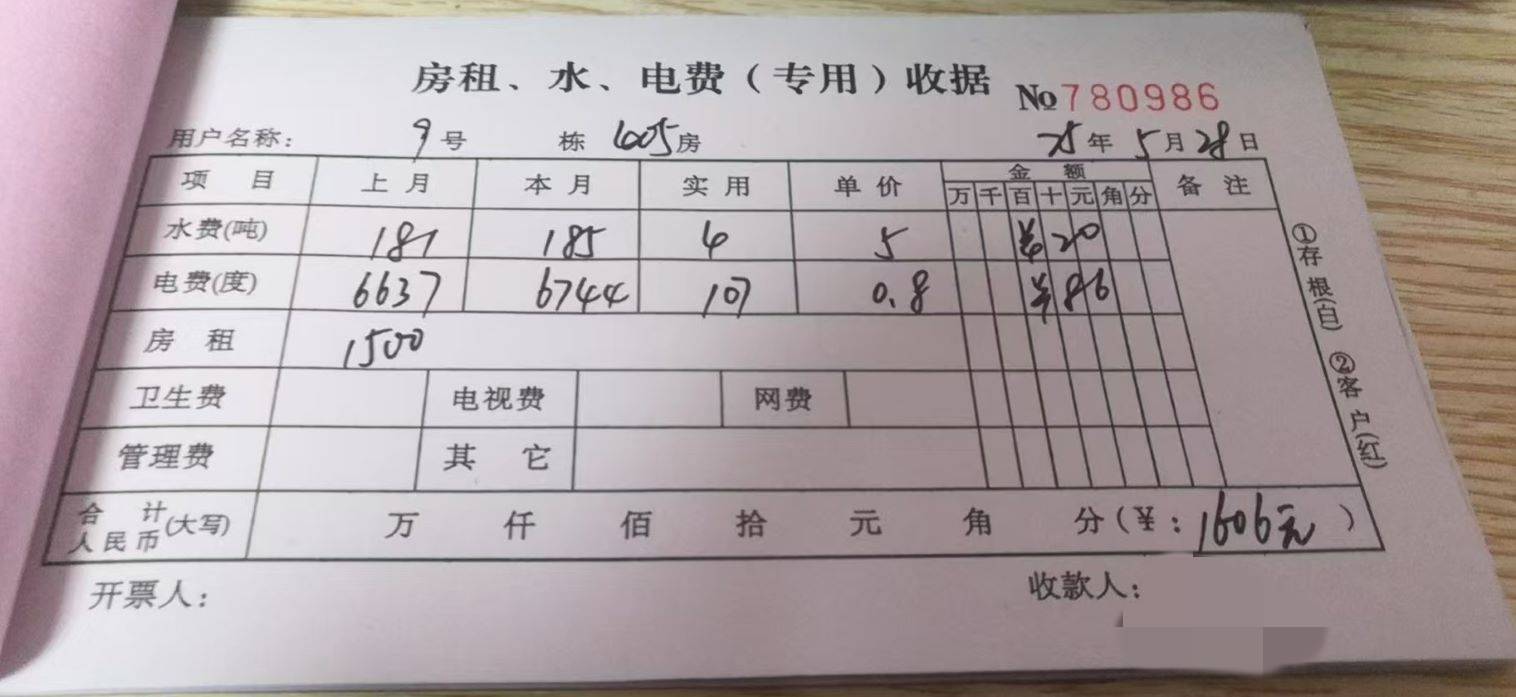 房租、水、电费(专用)收据 №780986
用户名称: 9号 栋 605房 25年5月28日
项 目 上 月 本 月 实 用 单 价 金 额 备 注
万 千 百 十 元 角 分
水费(吨) 181 185 4 5 ¥20
电费(度) 6637 6744 107 0.8 ¥86
房 租 1500
卫生费 电视费 网费
管理费 其 它
合 计 人民币 (大写) 万 仟 佰 拾 元 角 分(¥: 1606元 )
开票人: 收款人:
①存根(白) ②客户(红)